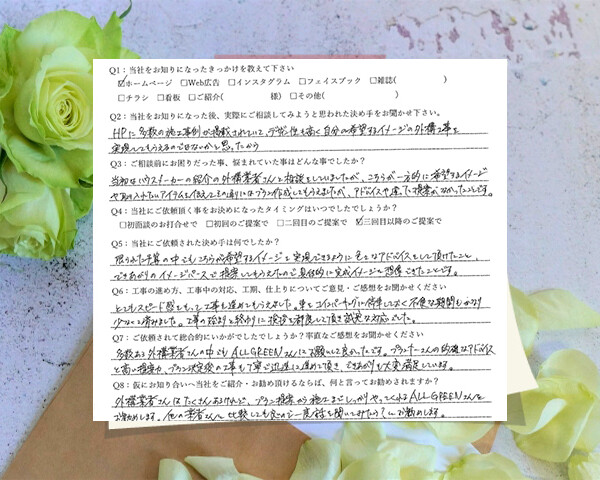 Q1：当社をお知りになったきっかけを教えて下さい
☑ホームページ □Web広告 □インスタグラム □フェイスブック □雑誌( )
□チラシ □看板 □ご紹介( 様) □その他( )
Q2：当社をお知りになった後、実際にご相談してみようと思われた決め手をお聞かせ下さい。
HPに多数の施工事例が掲載されていて、デザイン性も高く自分の希望するイメージの外構工事を
実現してもらえるのではないかと思ったから
Q3：ご相談前にお困りだった事、悩まれていた事はどんな事でしたか？
当初はハウスメーカーの紹介の外構業者さんと相談をしていましたが、こちらが一方的に希望するイメージ
や取り入れたいアイテムを伝えてその通りにはプラン作成してもらえましたが、アドバイスや違った提案がなかったことです。
Q4：当社にご依頼頂く事をお決めになったタイミングはいつでしたでしょうか？
□初回面談のお打合せで □初回のご提案で □二回目のご提案で ☑三回目以降のご提案で
Q5：当社にご依頼された決め手は何でしたか？
限られた予算の中でもこちらが希望するイメージを実現できるように色々なアドバイスをして頂けたこと、
できあがりのイメージパースでご提案してもらえたので具体的に完成イメージを想像できたことです。
Q6：工事の進め方、工事中の対応、工期、仕上りについてご意見・ご感想をお聞かせください
とてもスピード感をもって工事も進めてもらえました。車をコインパーキングに停車しておく不便な期間もかなり
少なくて済みました。工事の始まりと終わりに挨拶を都度して頂き誠実な対応でした。
Q7：ご依頼されて総合的にいかがでしたでしょうか？率直なご感想をお聞かせください
多数ある外構業者さんの中でもALL GREENさんにお願いして良かったです。プランナーさんの的確なアドバイス
と高い提案力、プラン決定後の工事も丁寧で迅速に進めて頂き、できあがりも大変満足しています。
Q8：仮にお知り合いへ当社をご紹介・お勧め頂けるならば、何と言ってお勧めされますか？
外構業者さんはたくさんあるけれど、プラン提案から施工までしっかりやってくれるALL GREENさんを
お勧めします。他の業者さんと比較しても良いので一度話を聞いてみたら？とお勧めします。